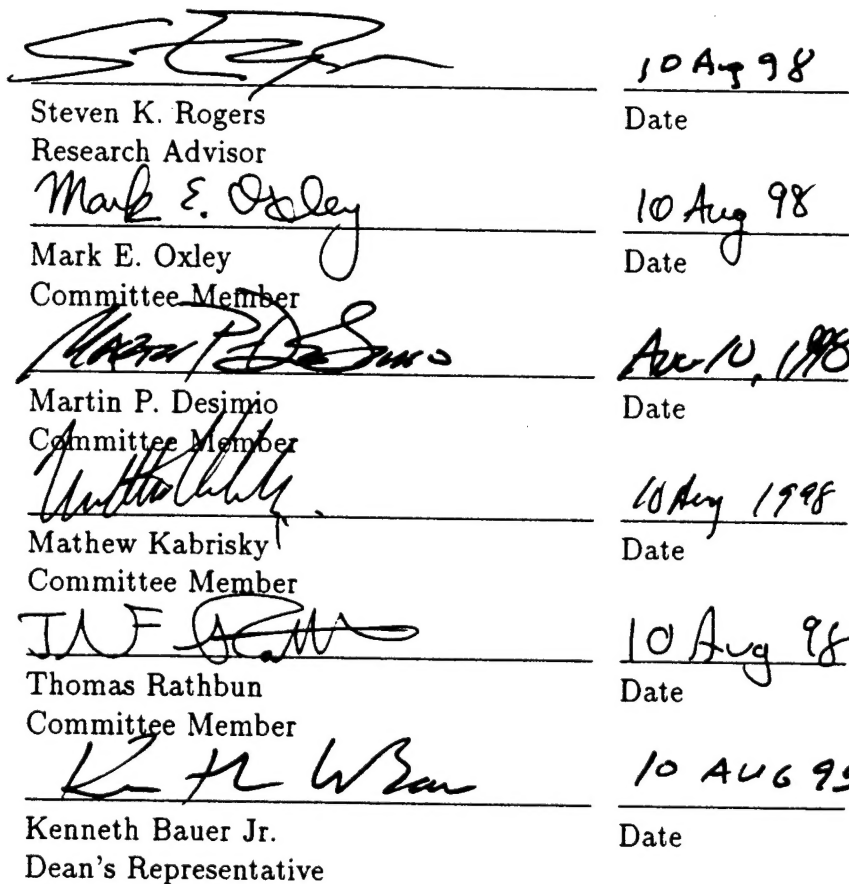 10 Aug 98
Steven K. Rogers
Date
Research Advisor
Mark E. Oxley
10 Aug 98
Mark E. Oxley
Date
Committee Member
Martin P. DeSimio
Aug 10, 1998
Martin P. Desimio
Date
Committee Member
10 Aug 1998
Mathew Kabrisky
Date
Committee Member
10 Aug 98
Thomas Rathbun
Date
Committee Member
10 AUG
Kenneth Bauer Jr.
Date
Dean's Representative